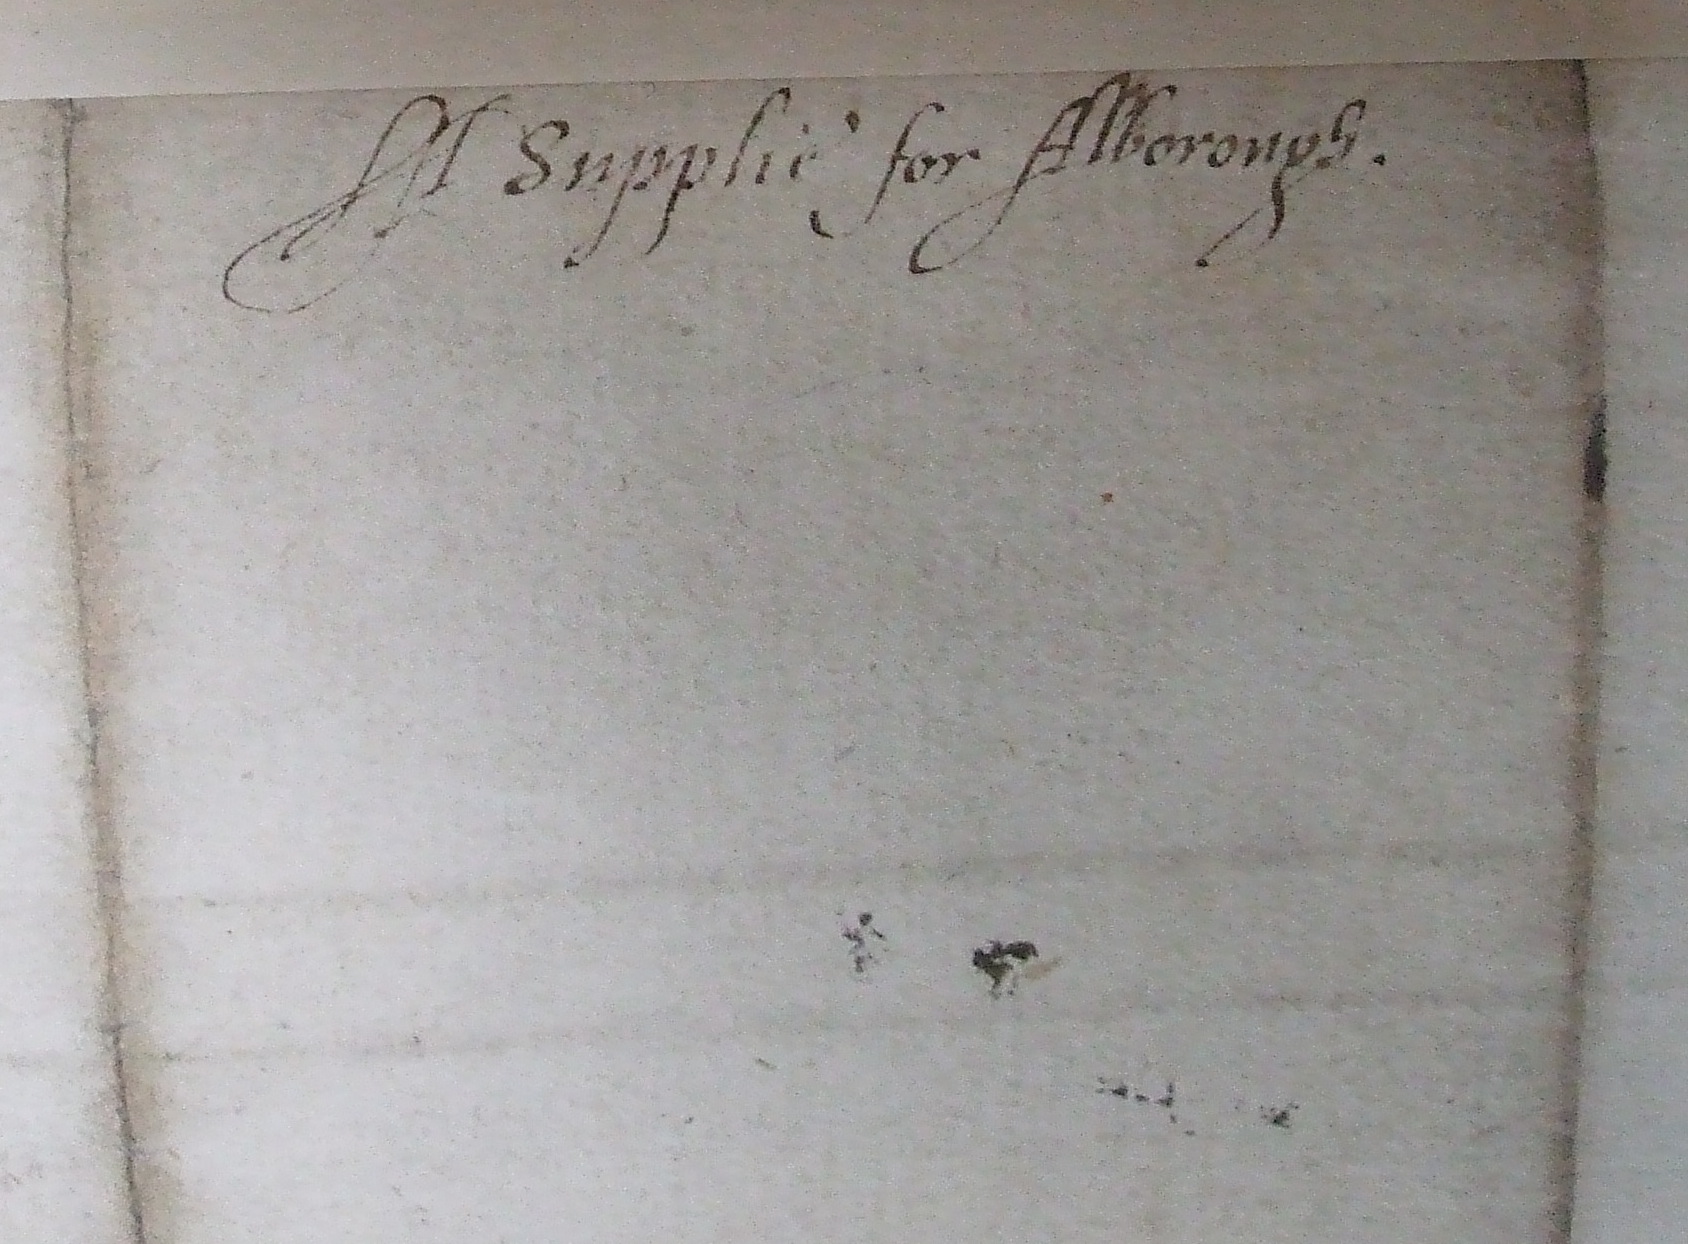 A Supplie for Alborough.